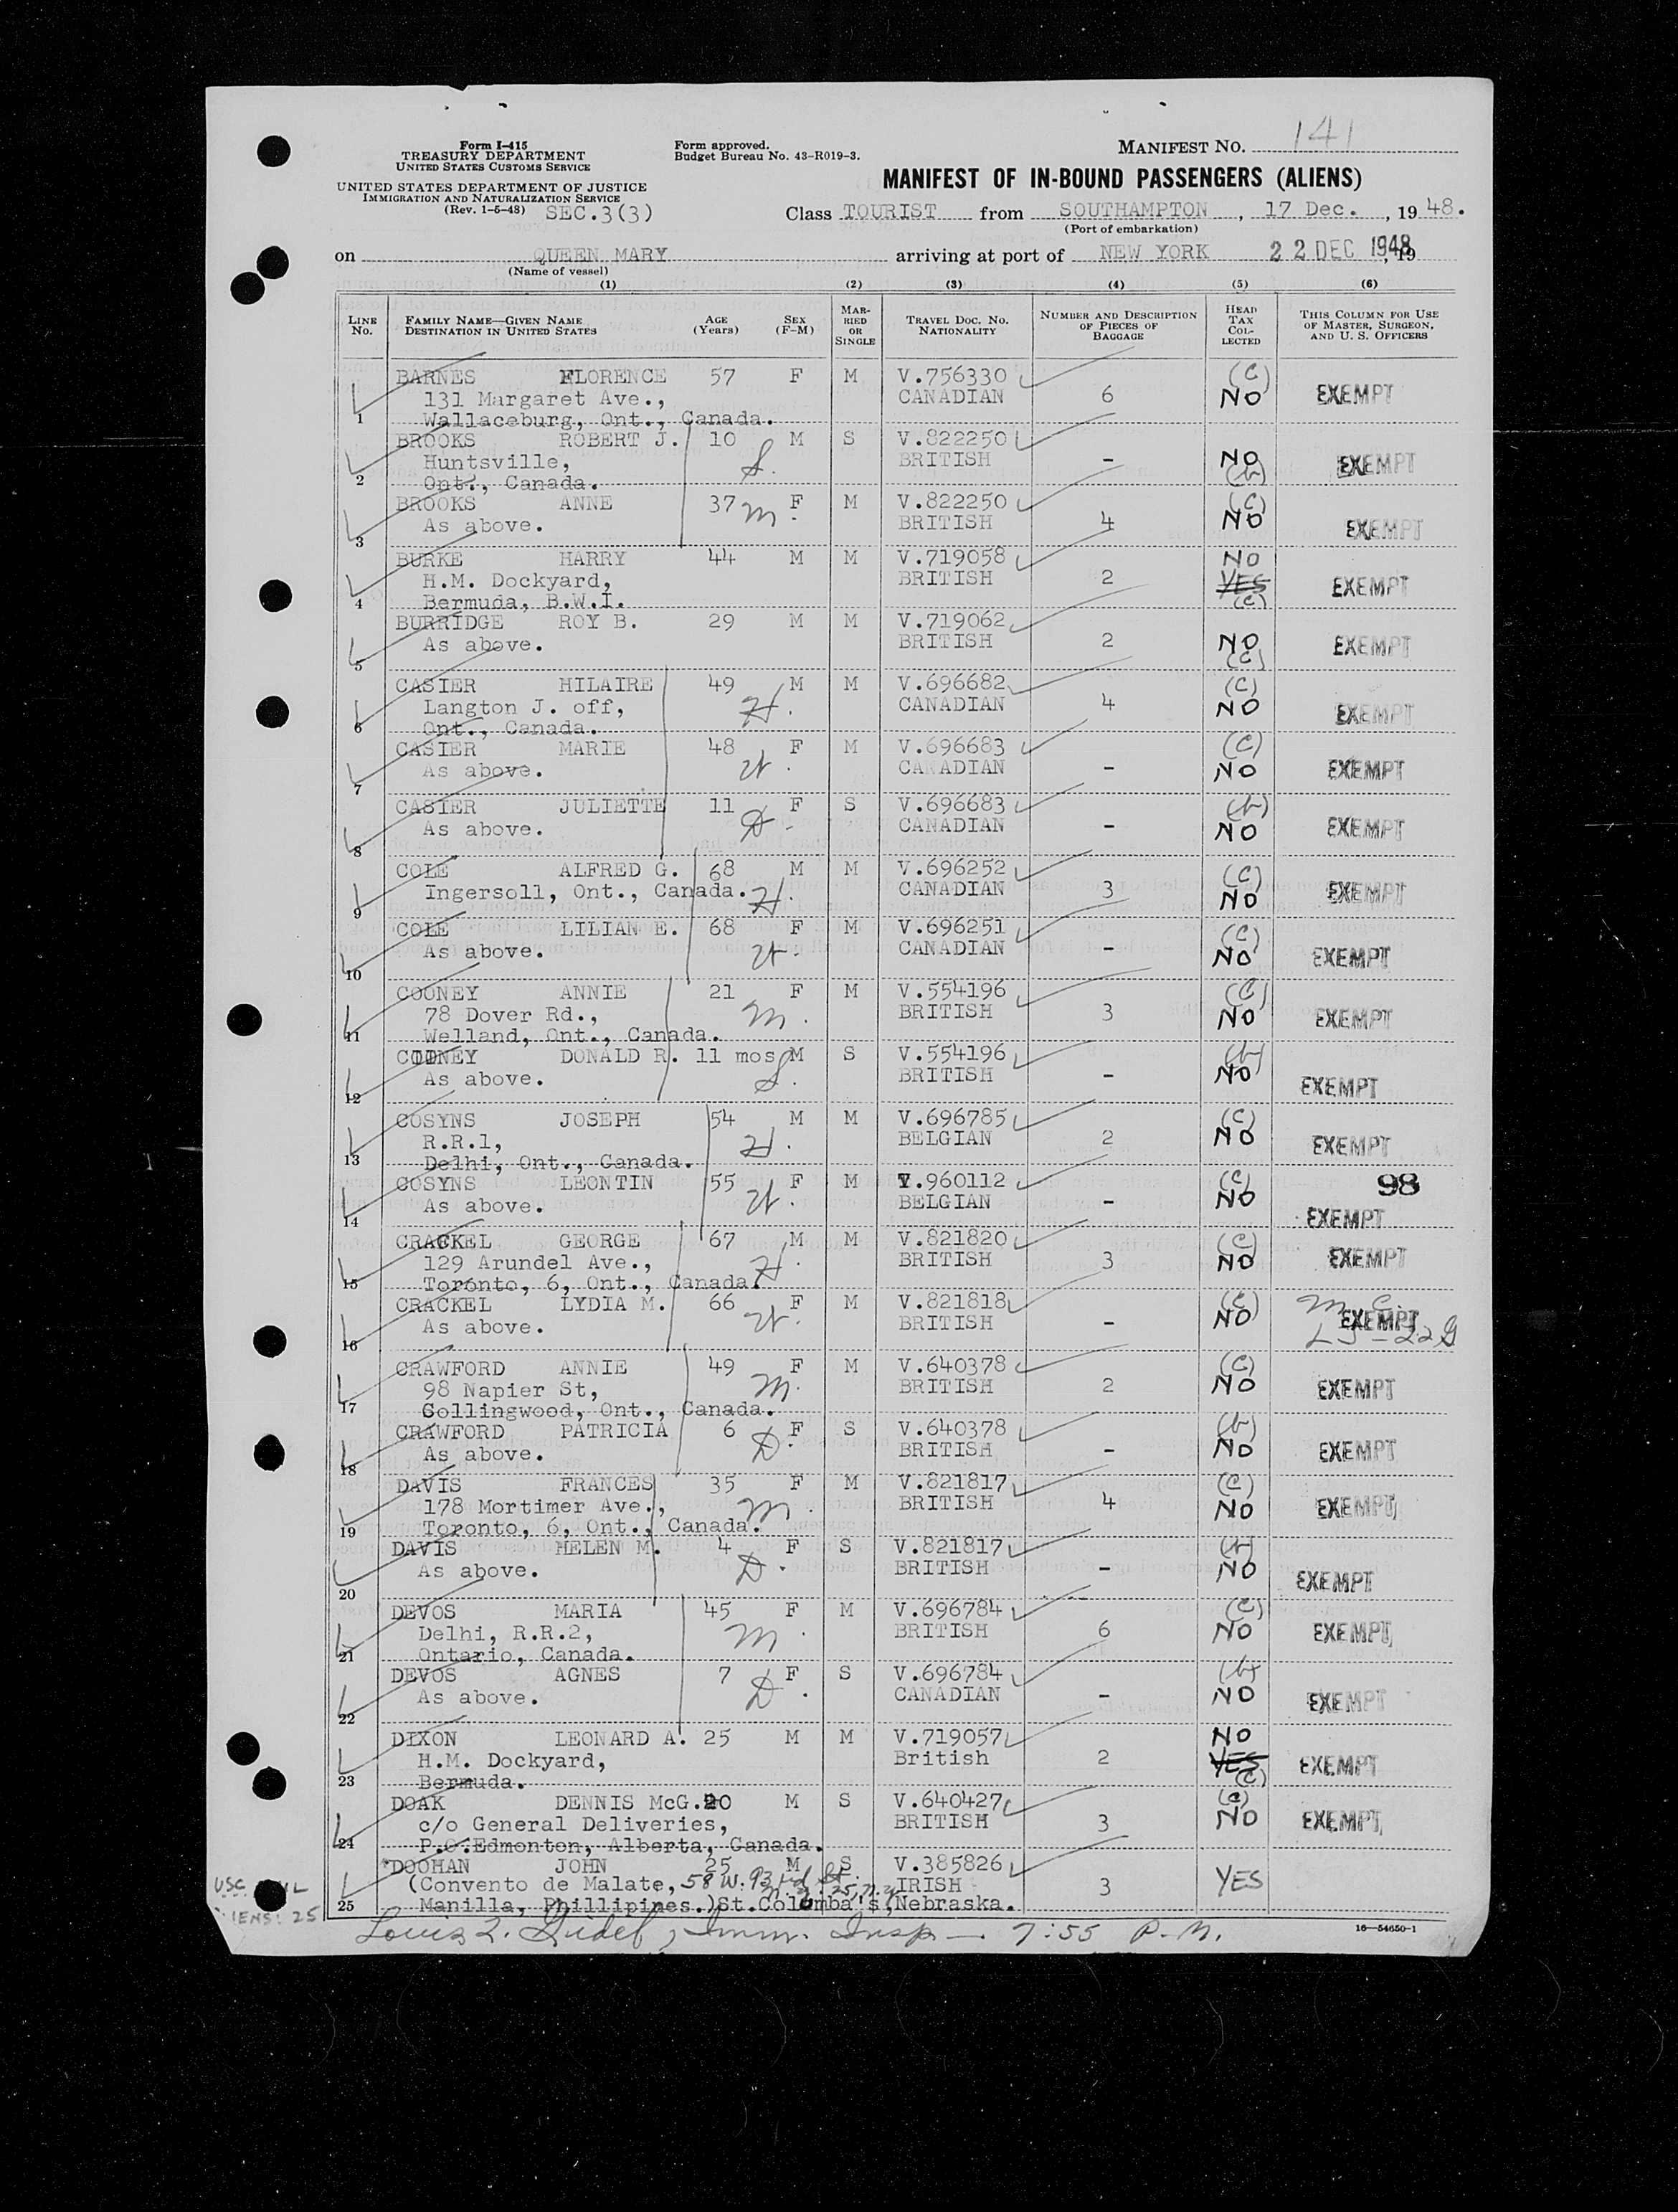 Form I-415
TREASURY DEPARTMENT
UNITED STATES CUSTOMS SERVICE
UNITED STATES DEPARTMENT OF JUSTICE
IMMIGRATION AND NATURALIZATION SERVICE
(Rev. 1-5-48) SEC.3(3)
Form approved.
Budget Bureau No. 43-R019-3.
MANIFEST NO. 141
MANIFEST OF IN-BOUND PASSENGERS (ALIENS)
Class TOURIST from SOUTHAMPTON, 17 Dec., 19 48.
(Port of embarkation)
on QUEEN MARY arriving at port of NEW YORK 22 DEC 1948, 19
(Name of vessel)
(1) (2) (3) (4) (5) (6)
LINE No. FAMILY NAME—GIVEN NAME DESTINATION IN UNITED STATES AGE (Years) SEX (F-M) MARRIED OR SINGLE TRAVEL DOC. NO. NATIONALITY NUMBER AND DESCRIPTION OF PIECES OF BAGGAGE HEAD TAX COLLECTED THIS COLUMN FOR USE OF MASTER, SURGEON, AND U. S. OFFICERS
BARNES FLORENCE 57 F M V.756330 (C)
131 Margaret Ave., CANADIAN 6 NO EXEMPT
1 Wallaceburg, Ont., Canada.
BROOKS ROBERT J. 10 M S V.822250
Huntsville, S. BRITISH - NO EXEMPT
2 Ont., Canada. (b)
BROOKS ANNE 37 m. F M V.822250 (C)
As above. BRITISH 4 NO EXEMPT
3
BURKE HARRY 44 M M V.719058 NO
H.M. Dockyard, BRITISH 2 YES EXEMPT
4 Bermuda, B.W.I. (C)
BURRIDGE ROY B. 29 M M V.719062
As above. BRITISH 2 NO EXEMPT
5 (C)
CASIER HILAIRE 49 M M V.696682 (C)
Langton J. off, H. CANADIAN 4 NO EXEMPT
6 Ont., Canada.
CASIER MARIE 48 F M V.696683 (C)
As above. W. CANADIAN - NO EXEMPT
7
CASIER JULIETTE 11 F S V.696683 (b)
As above. D. CANADIAN - NO EXEMPT
8
COLE ALFRED G. 68 M M V.696252 (C)
Ingersoll, Ont., Canada. H. CANADIAN 3 NO EXEMPT
9
COLE LILIAN E. 68 F M V.696251 (C)
As above. W. CANADIAN - NO EXEMPT
10
COONEY ANNIE 21 F M V.554196 (C)
78 Dover Rd., m. BRITISH 3 NO EXEMPT
11 Welland, Ont., Canada.
COONEY DONALD R. 11 mos M S V.554196 (b)
As above. S. BRITISH - NO EXEMPT
12
COSYNS JOSEPH 54 M M V.696785 (C)
R.R.1, H. BELGIAN 2 NO EXEMPT
13 Delhi, Ont., Canada.
COSYNS LEONTIN 55 F M V.960112 (C) 98
As above. W. BELGIAN - NO EXEMPT
14
CRACKEL GEORGE 67 M M V.821820 (C)
129 Arundel Ave., H. BRITISH 3 NO EXEMPT
15 Toronto, 6, Ont., Canada.
CRACKEL LYDIA M. 66 F M V.821818 (C) m. C.
As above. W. BRITISH - NO EXEMPT
16
CRAWFORD ANNIE 49 F M V.640378 (C)
98 Napier St, m. BRITISH 2 NO EXEMPT
17 Collingwood, Ont., Canada.
CRAWFORD PATRICIA 6 F S V.640378 (b)
As above. D. BRITISH - NO EXEMPT
18
DAVIS FRANCES 35 F M V.821817 (C)
178 Mortimer Ave., m. BRITISH 4 NO EXEMPT
19 Toronto, 6, Ont., Canada.
DAVIS HELEN M. 4 F S V.821817 (b)
As above. D. BRITISH - NO EXEMPT
20
DEVOS MARIA 45 F M V.696784 (C)
Delhi, R.R.2, m. BRITISH 6 NO EXEMPT
21 Ontario, Canada.
DEVOS AGNES 7 F S V.696784 (b)
As above. D. CANADIAN - NO EXEMPT
22
DIXON LEONARD A. 25 M M V.719057 NO
H.M. Dockyard, British 2 YES EXEMPT
23 Bermuda. (C)
DOAK DENNIS McG. 20 M S V.640427 (C)
c/o General Deliveries, BRITISH 3 NO EXEMPT
24 P.O. Edmonton, Alberta, Canada.
DOOHAN JOHN 25 M S V.385826
(Convento de Malate, 58 W. 93rd St. N.Y. 25, N.Y. IRISH 3 YES
25 Manilla, Phillipines.) St. Colomba's, Nebraska.
USC
ALIENS: 25
Imm. Insp — 7:55 P.M.
16—54650-1